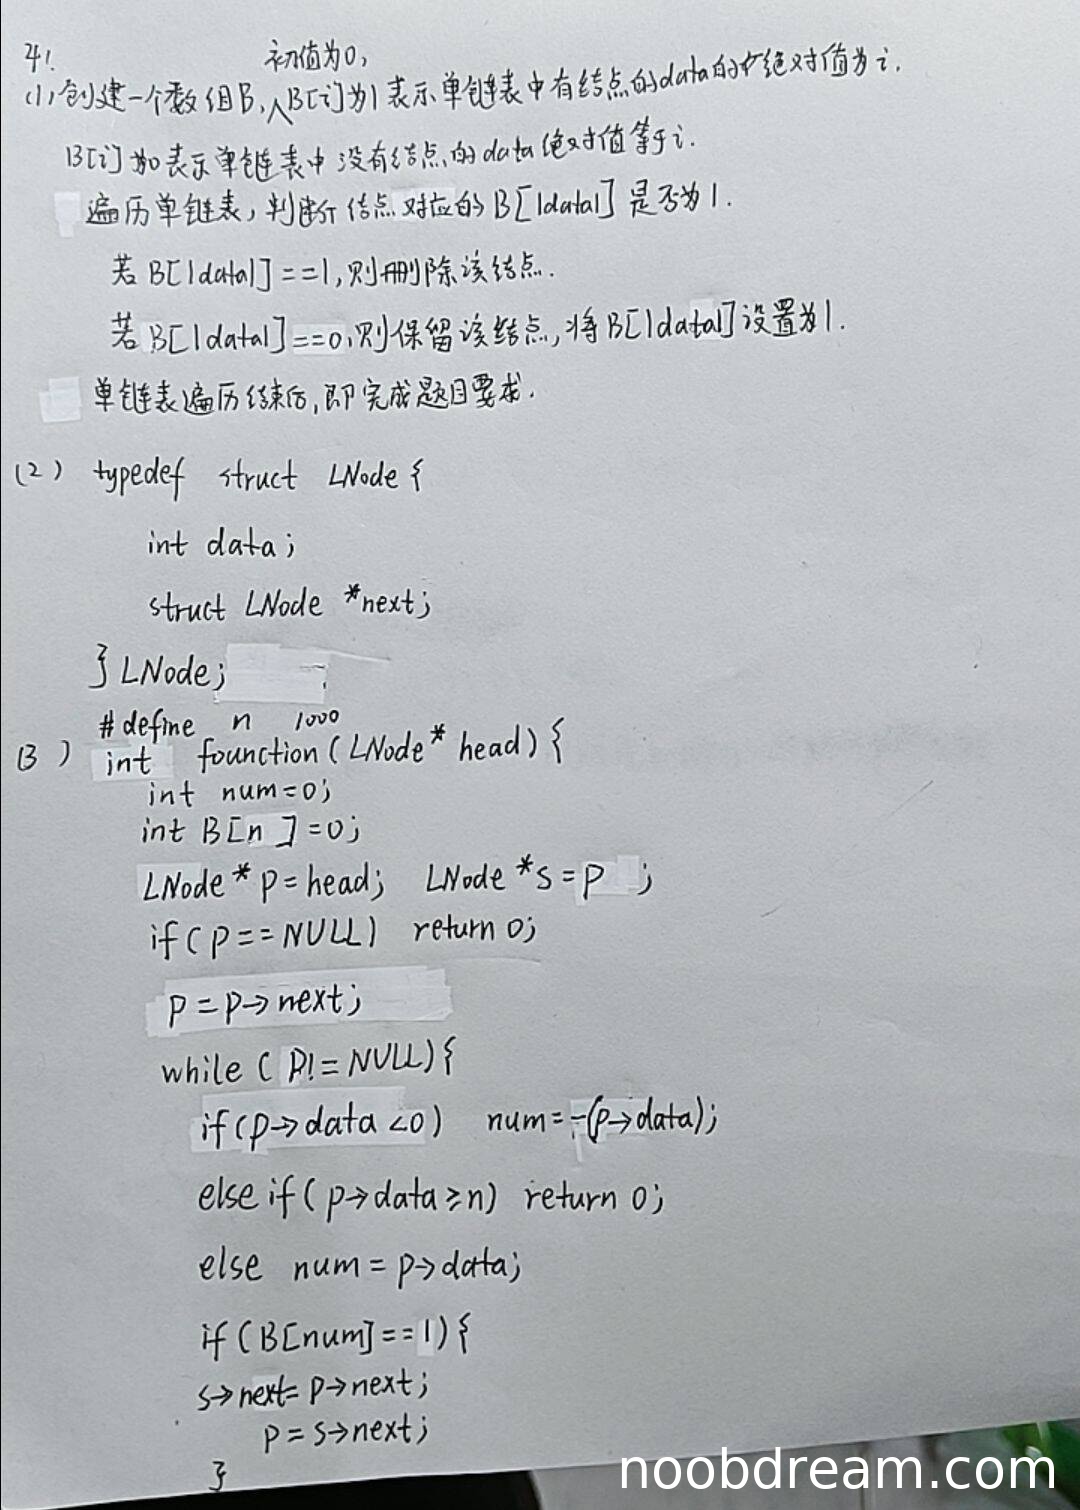 41.
初值为0,
(1)创建一个数组B,人B[i]为1表示单链表中有结点的data的绝对值为i.
B[i]为0表示单链表中没有结点的data绝对值等于i.
遍历单链表,判断结点对应的B[|data|]是否为1.
若B[|data|]==1,则删除该结点.
若B[|data|]==0,则保留该结点,将B[|data|]设置为1.
单链表遍历结束后,即完成题目要求.
(2) typedef struct LNode{
int data;
struct LNode *next;
}LNode;
#define n 1000
(3) int founction(LNode* head){
int num=0;
int B[n]=0;
LNode* p=head; LNode *s=p;
if(p==NULL) return 0;
p=p→next;
while(p!=NULL){
if(p→data<0) num=-(p→data);
else if(p→data≥n) return 0;
else num=p→data;
if(B[num]==1){
s→next=p→next;
p=s→next;
}
noobdream.com